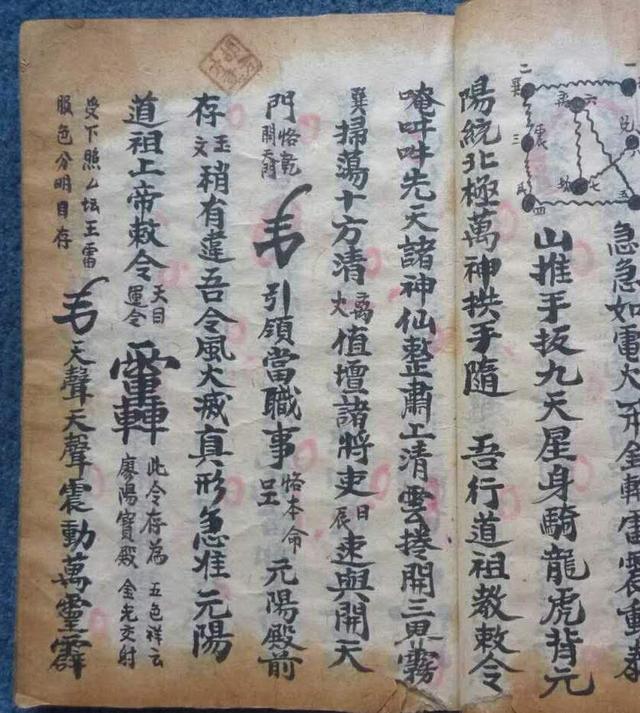 急急如電火
山推手扳九天星身騎龍虎背元
陽統北極萬神拱手隨 吾行道祖教敕令
唵吽吽先天諸神仙整肅上清雲捲開三界霧
巽掃蕩十方清離火值壇諸將吏日辰速與開天
門恪乾開天門 引領當職事恪本命呈元陽殿前
存玉文稍有違吾令風火滅真形急准元陽
道祖上帝敕令天目運令 此令存為五色祥云廖陽寶殿金光交射
受下照厶坛王雷服色分明目存 天聲天聲震動萬靈霹